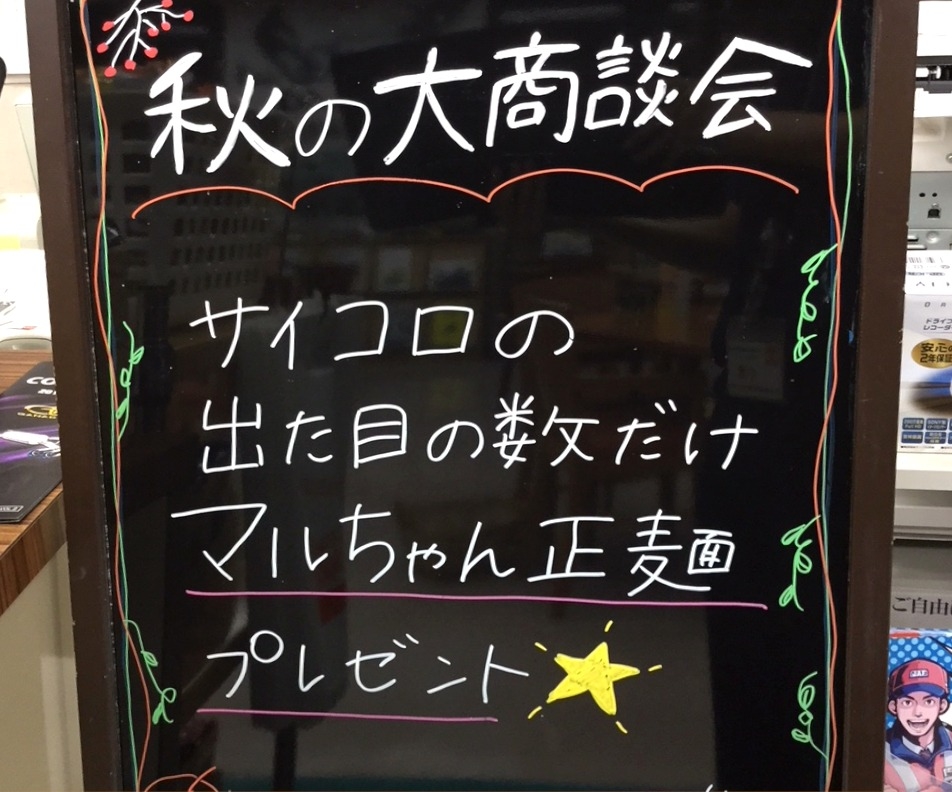 秋の大商談会
サイコロの
出た目の数だけ
マルちゃん正麺
プレゼント
ドライブ
レコーダ
安心の
2年保証
ご自由に
JAF